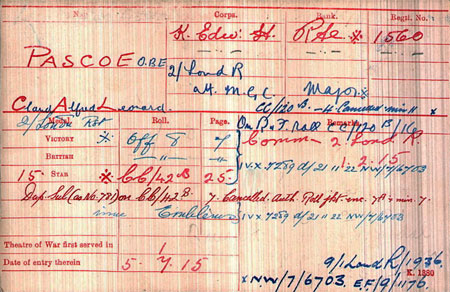 Name. Corps. Rank. Regtl. No.
K. Edw. H. Pte * 1560
PASCOE O.B.E
2/ Lond R
att. M.G.C. Major *
CC/120 B. Cancelled min 11 *
Alfred Leonard.
2/London Regt
Medal. Roll. Page. Remarks.
On R.F. Roll CC/120 B/16
VICTORY * Off 8 7
Comm. 2 Lond R.
BRITISH " " "
1.2.15
15 STAR * CC/42 B 25
IV.X 7289 d/ 21 11 22 NW/7/6703
CC/42 B. 7. Cancelled. Auth. Roll min 7.
Emblems IV X 7289 d/ 21 11 22 NW/7/6703
Theatre of War first served in 1
Date of entry therein 5.7.15
9/1 Lond R/1936.
K. 1380
* NW/7/6703. E.F/9/1176.